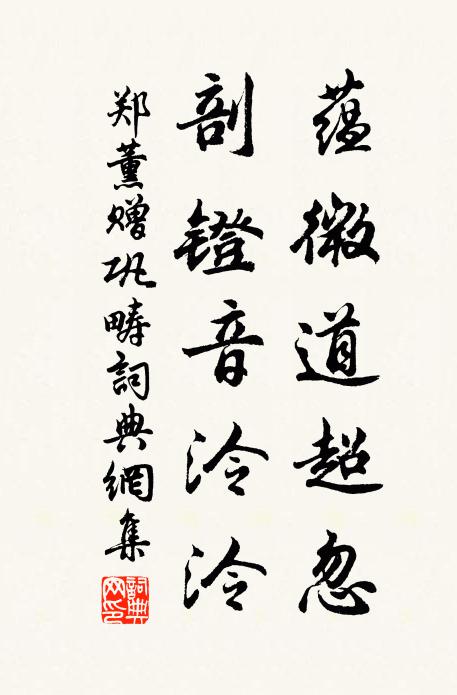 蘊微道超忽
剖鐙音泠泠
郑薰赠巩畴詞典網集
詞典网印